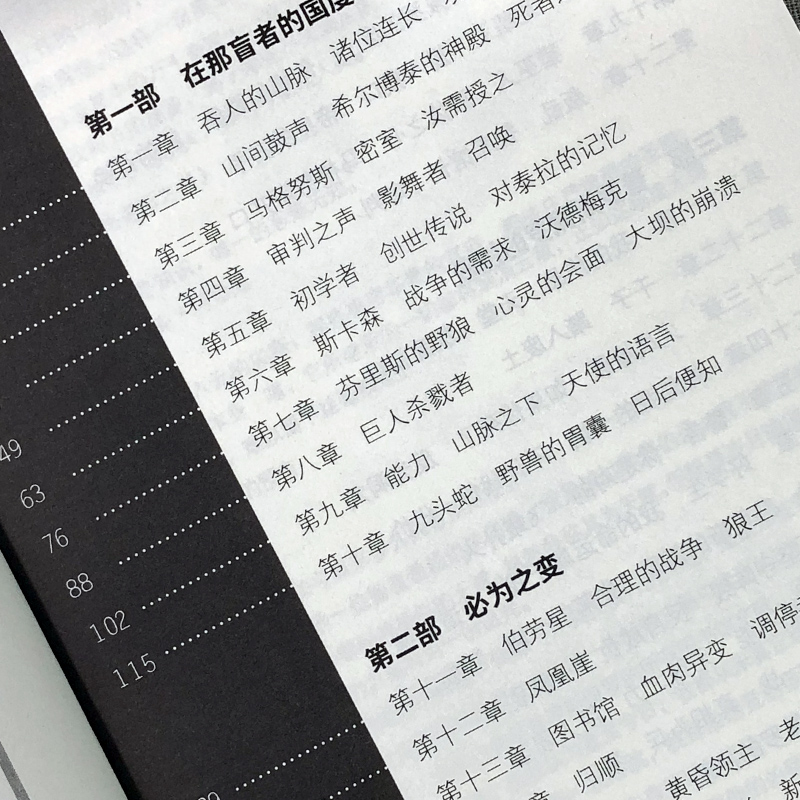 第一部 在那盲者的国度
第一章 吞人的山脉 诸位连长
第二章 山间鼓声 希尔博泰的神殿 死者
第三章 马格努斯 密室 汝需授之
第四章 审判之声 影舞者 召唤
第五章 初学者 创世传说 对泰拉的记忆
第六章 斯卡森 战争的需求 沃德梅克
第七章 芬里斯的野狼 心灵的会面 大坝的崩溃
第八章 巨人杀戮者
第九章 能力 山脉之下 天使的语言
第十章 九头蛇 野兽的胃囊 日后便知
49
63
76
88
102
115
第二部 必为之变
第十一章 伯劳星 合理的战争 狼王
第十二章 凤凰崖
第十三章 图书馆 血肉异变 调停
章 归顺 黄昏领主 老
新